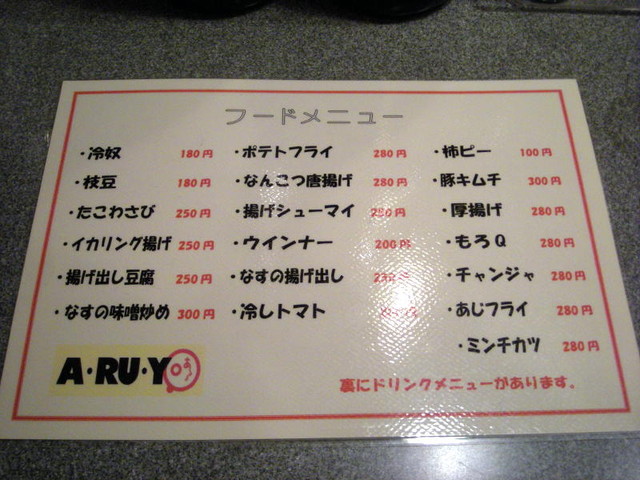 フードメニュー
・冷奴 180円
・枝豆 180円
・たこわさび 250円
・イカリング揚げ 250円
・揚げ出し豆腐 250円
・なすの味噌炒め 300円
・ポテトフライ 280円
・なんこつ唐揚げ 280円
・揚げシューマイ 円
・ウインナー 200円
・なすの揚げ出し
・冷しトマト
・柿ピー 100円
・豚キムチ 300円
・厚揚げ 280円
・もろQ 280円
・チャンジャ 280円
・あじフライ 280円
・ミンチカツ 280円
A・RU・YO
裏にドリンクメニューがあります。